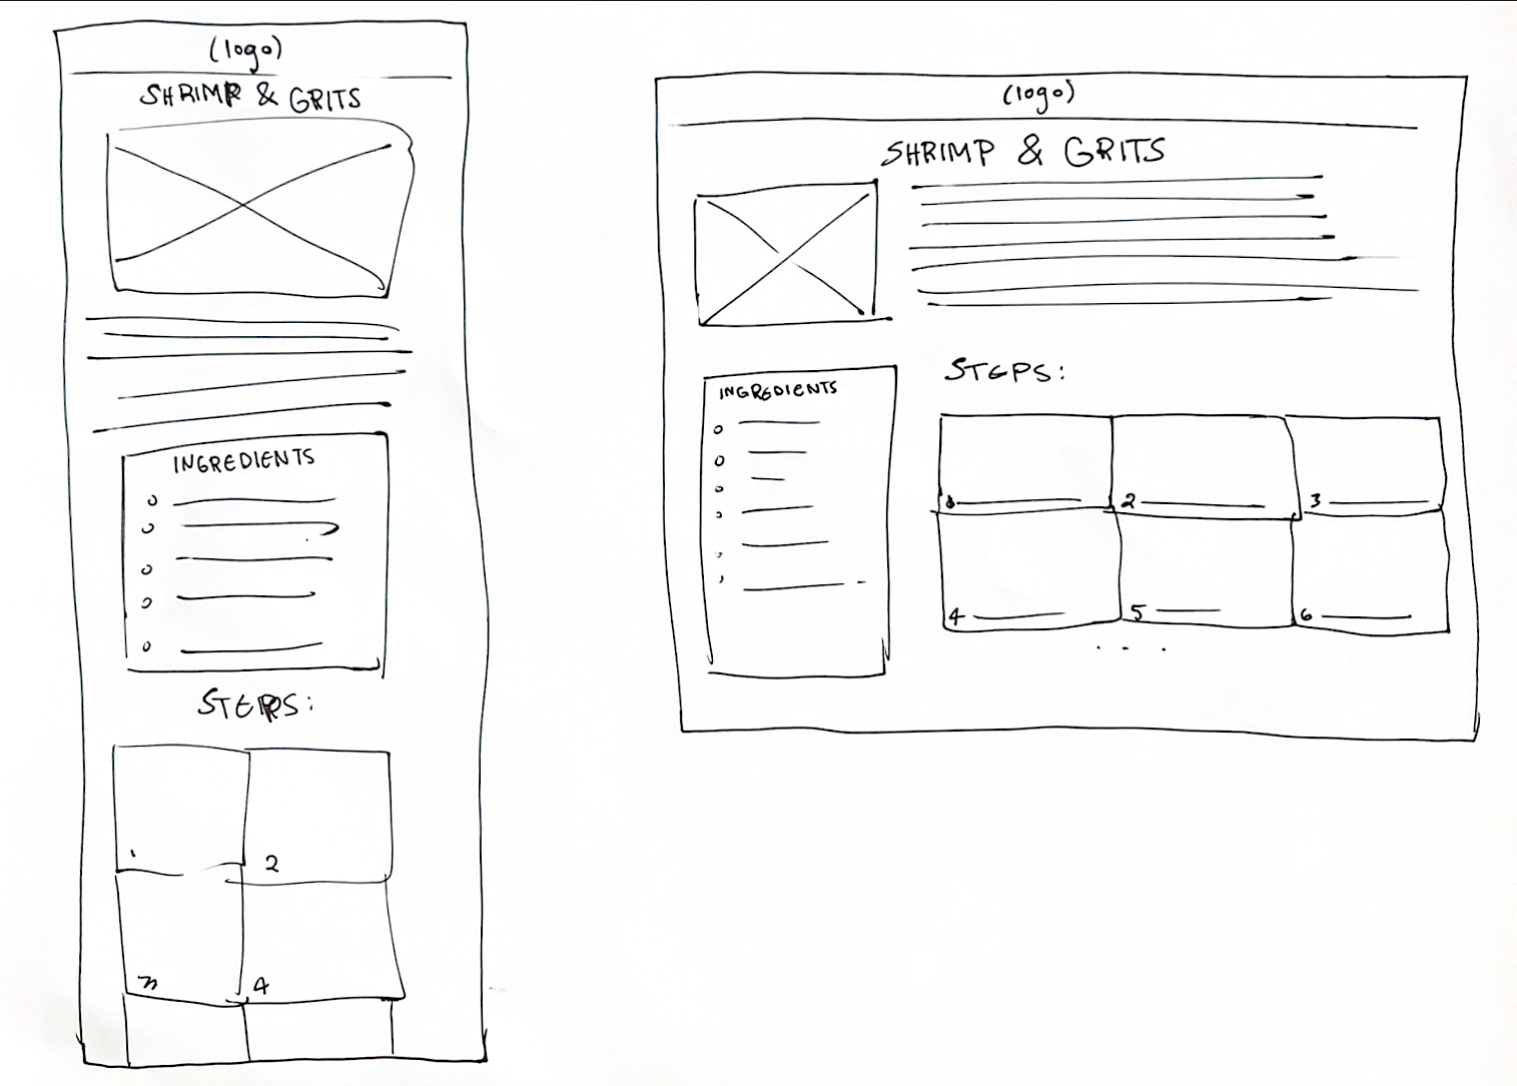 (logo)
SHRIMP & GRITS
INGREDIENTS
STEPS:
1
2
3
4
(logo)
SHRIMP & GRITS
INGREDIENTS
STEPS:
1
2
3
4
5
6
. . .